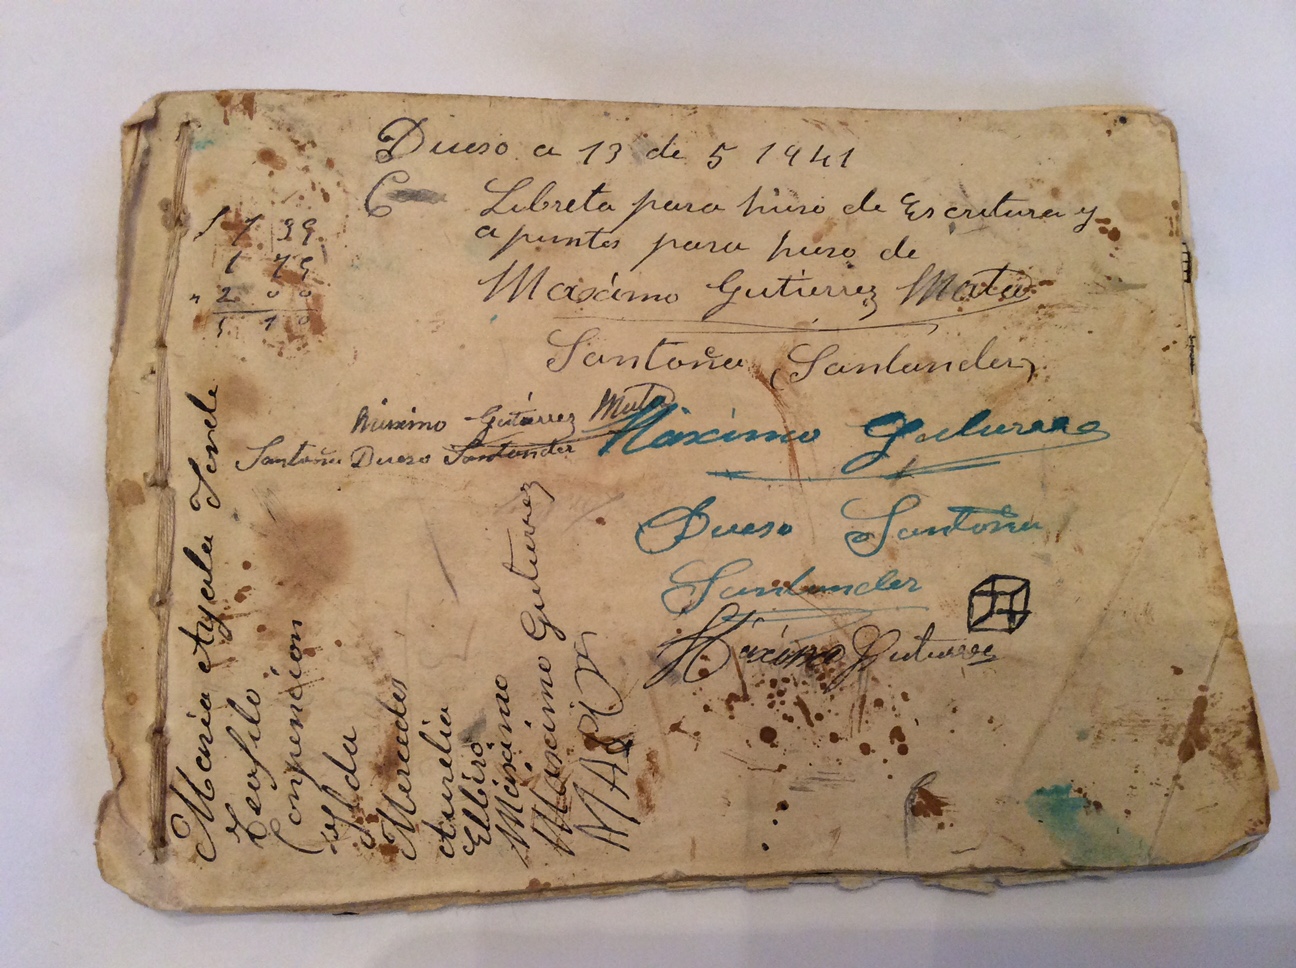 Dueso a 13 de 5 1941
Libreta para huso de Escritura y
apuntes para huso de
Maxímo Gutierrez Mata
Santoña (Santander)
1 7 39
1 79
" 2 00
5 10
Maximo Gutierrez Mata
Santoña Dueso Santander
Maxímo Gutierrez
Dueso Santoña
Santander
Maxímo Gutierrez
Maria Ayala
Teofilo
Conpencion
Ylda
Mercedes
Aurelia
Elbiro
Maximo
Maximo Gutierrez